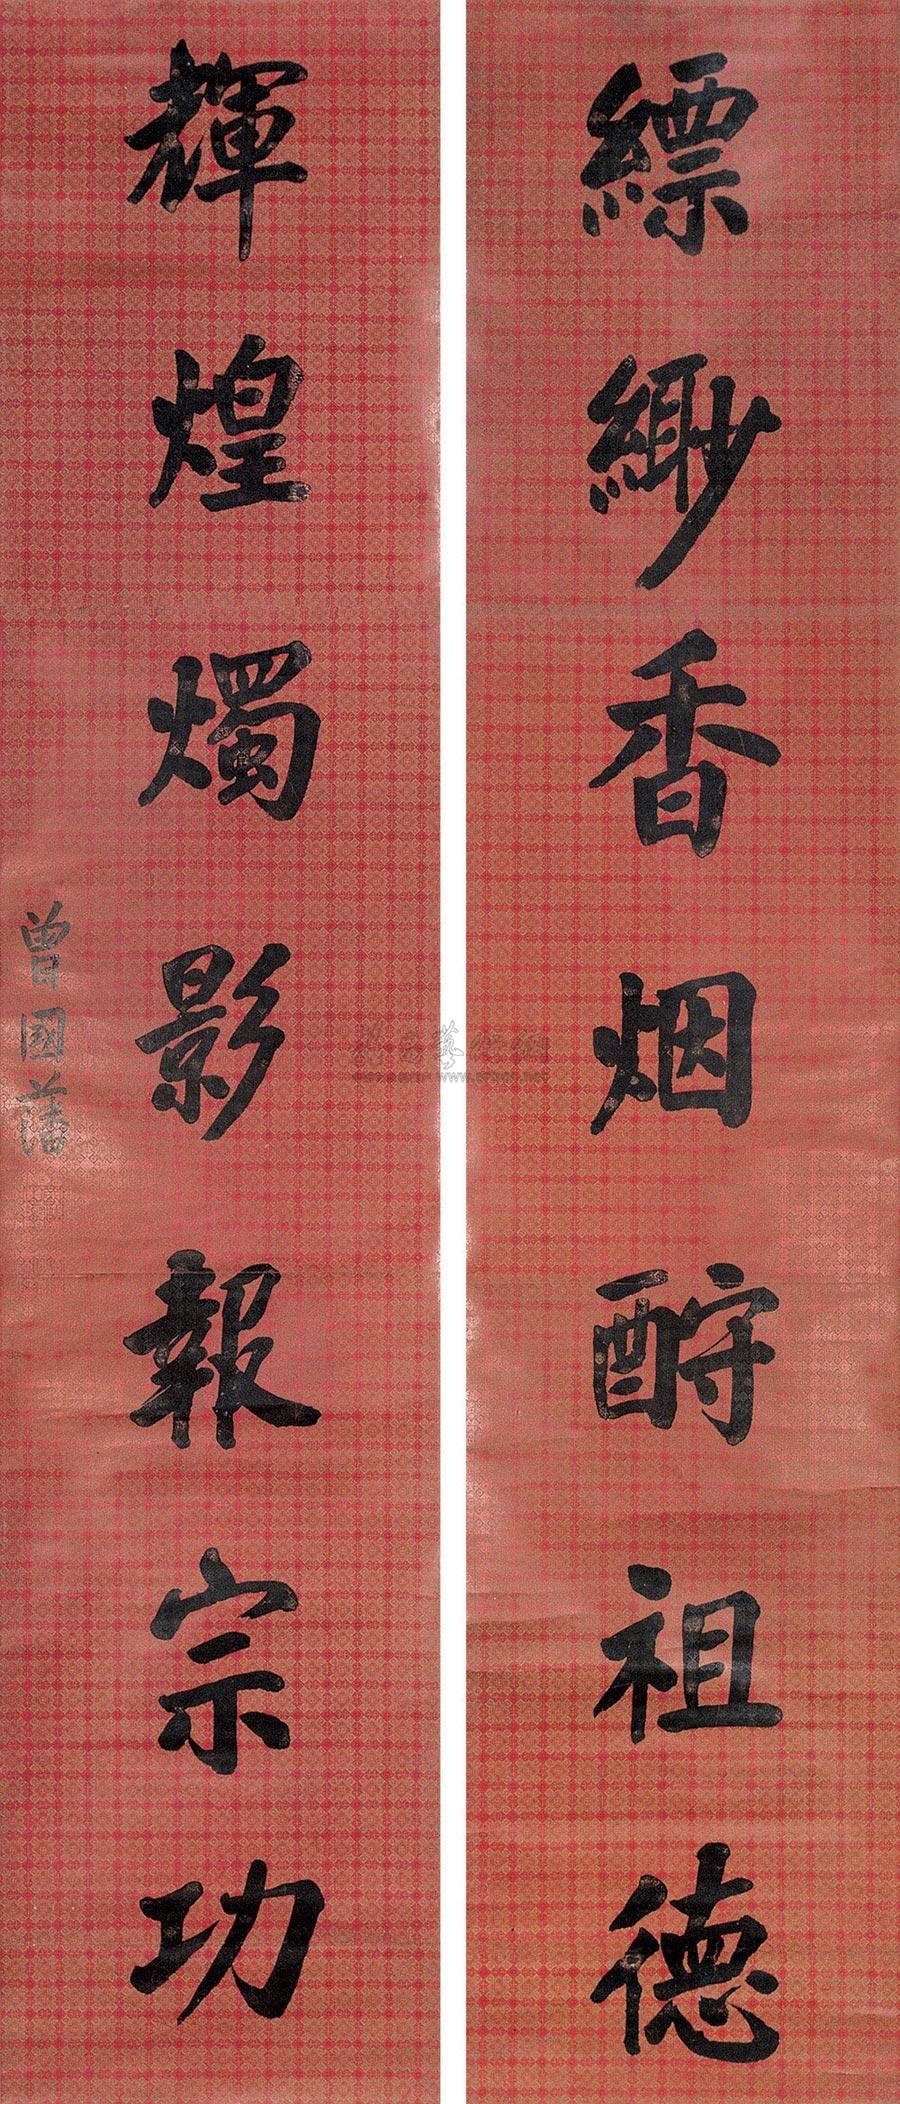 縹緲香烟酹祖德
輝煌燭影報宗功
曾國藩